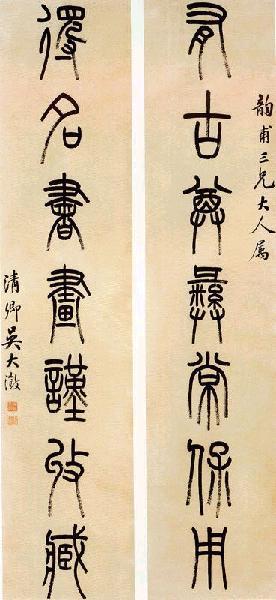 韵甫三兄大人属
有古尊彝常保用
得名書畫謹收藏
清卿吳大澂